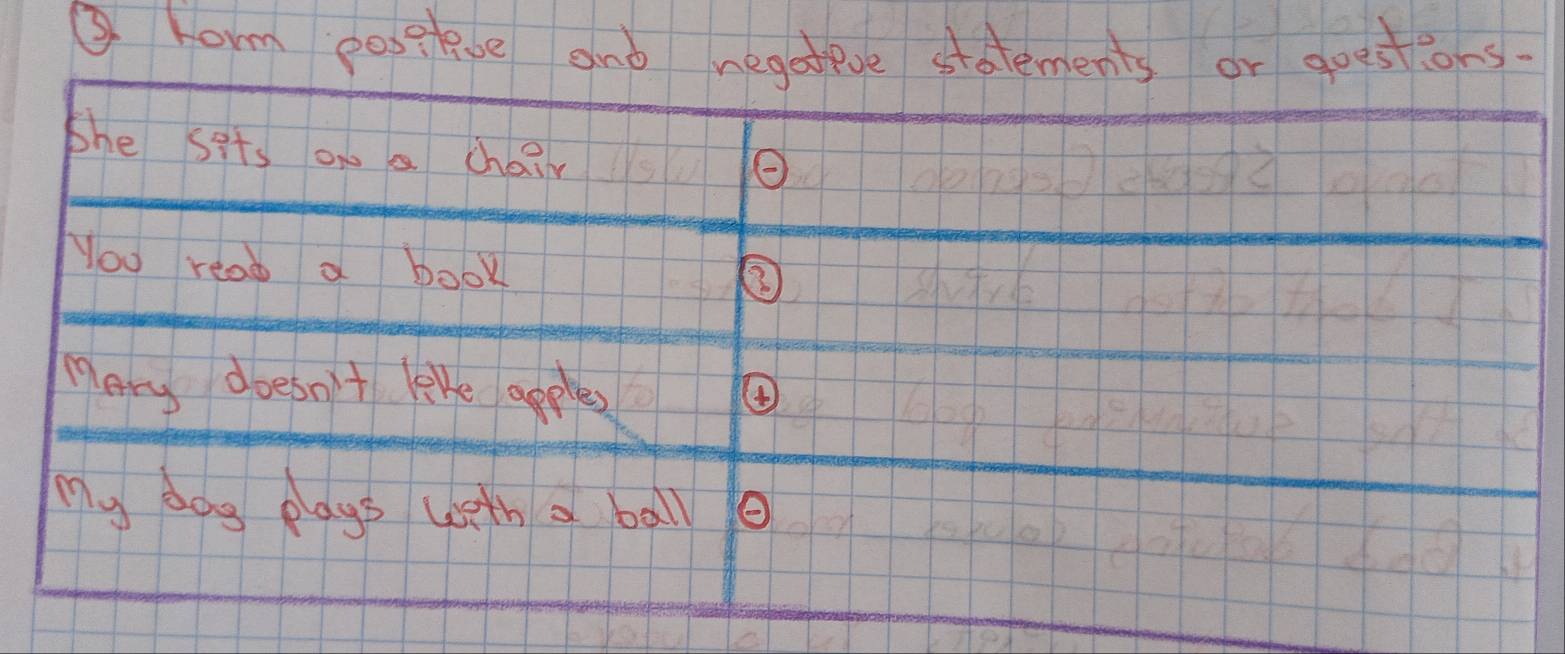 ③ Form positive and negative statements or questions.
She sits on a chair ⊖
You read a book ?
Mary doesn't like apples ⊕
My dog plays with a ball ⊖